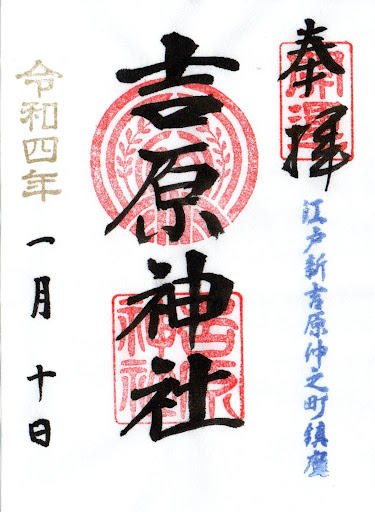 奉拝
江戸新吉原仲之町鎮座
吉原神社
吉原神社
令和四年
一月十日